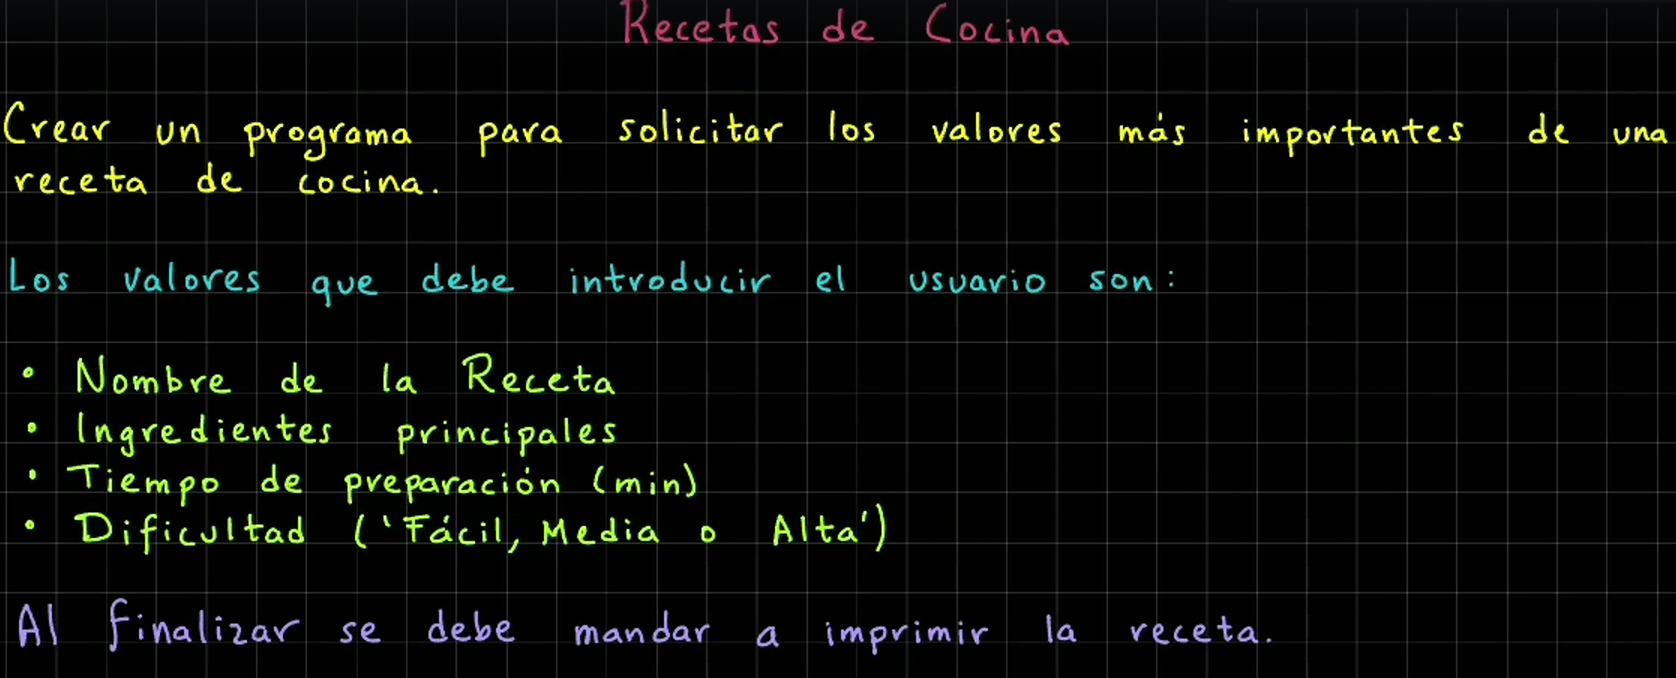 Recetas de Cocina
Crear un programa para solicitar los valores más importantes de una
receta de cocina.
Los valores que debe introducir el usuario son:
• Nombre de la Receta
• Ingredientes principales
• Tiempo de preparación (min)
• Dificultad ('Fácil, Media o Alta')
Al finalizar se debe mandar a imprimir la receta.